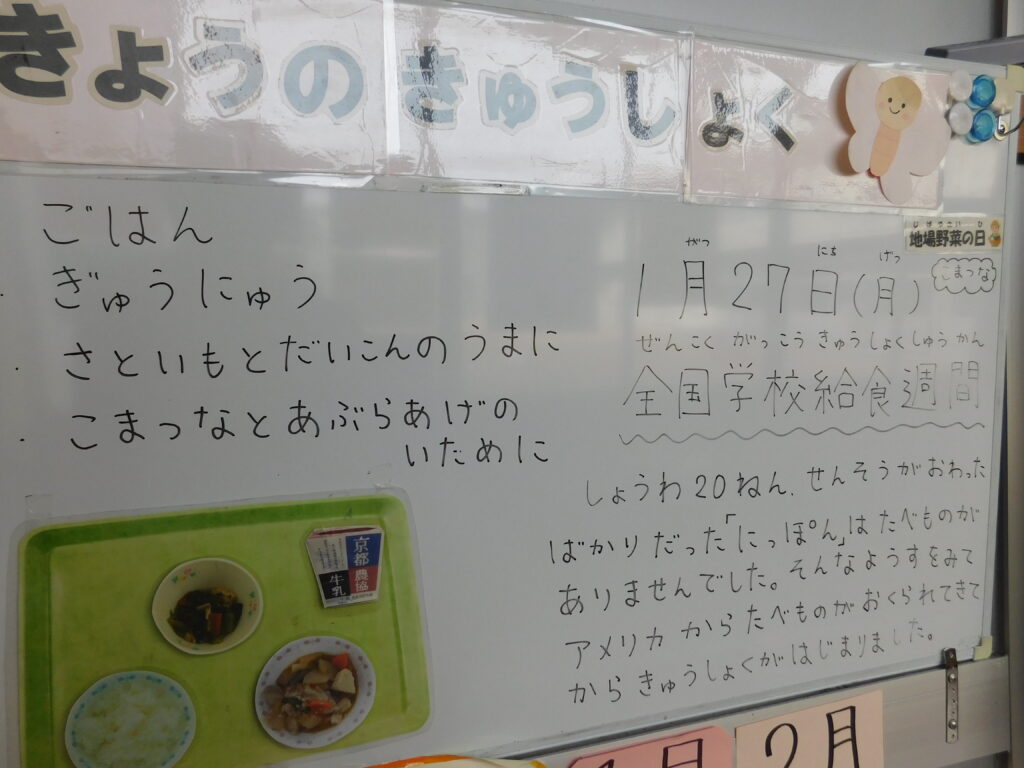 きょうのきゅうしょく
ごはん
ぎゅうにゅう
・さといもとだいこんのうまに
・こまつなとあぶらあげの
いために
京都農協
牛乳
地場野菜の日
こまつな
がつ にち げつ
1月27日(月)
ぜんこく がっこう きゅうしょくしゅうかん
全国学校給食週間
しょうわ20ねん、せんそうがおわった
ばかりだった「にっぽん」はたべものが
ありませんでした。そんなようすをみて
アメリカからたべものがおくられてきて
からきゅうしょくがはじまりました。
1月
2月